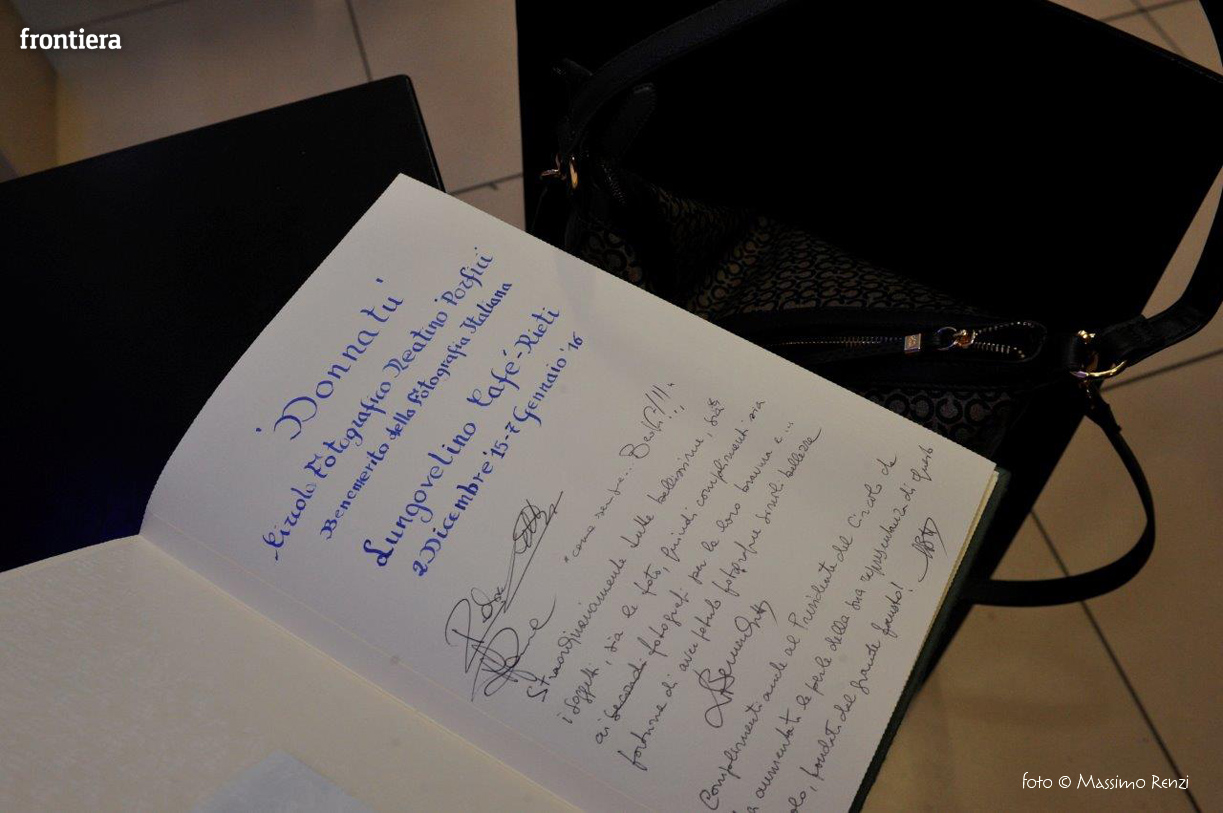 frontiera
'Donnatu'
Circolo Fotografico Reatino Porfiri
Benemerito della Fotografia Italiana
Lungovelino Café-Rieti
2 Dicembre '15-7 Gennaio '16
"come sempre... Bravi!!!"
Straordinariamente tutte bellissime, sia
i soggetti, sia le foto, quindi complimenti sia
ai fotografi per la loro bravura e...
fortuna di aver potuto fotografare simili bellezze
Complimenti anche al Presidente del Circolo che
aumentato le perle della sua rappresentanza di questo
fondato dal grande
foto © Massimo Renzi